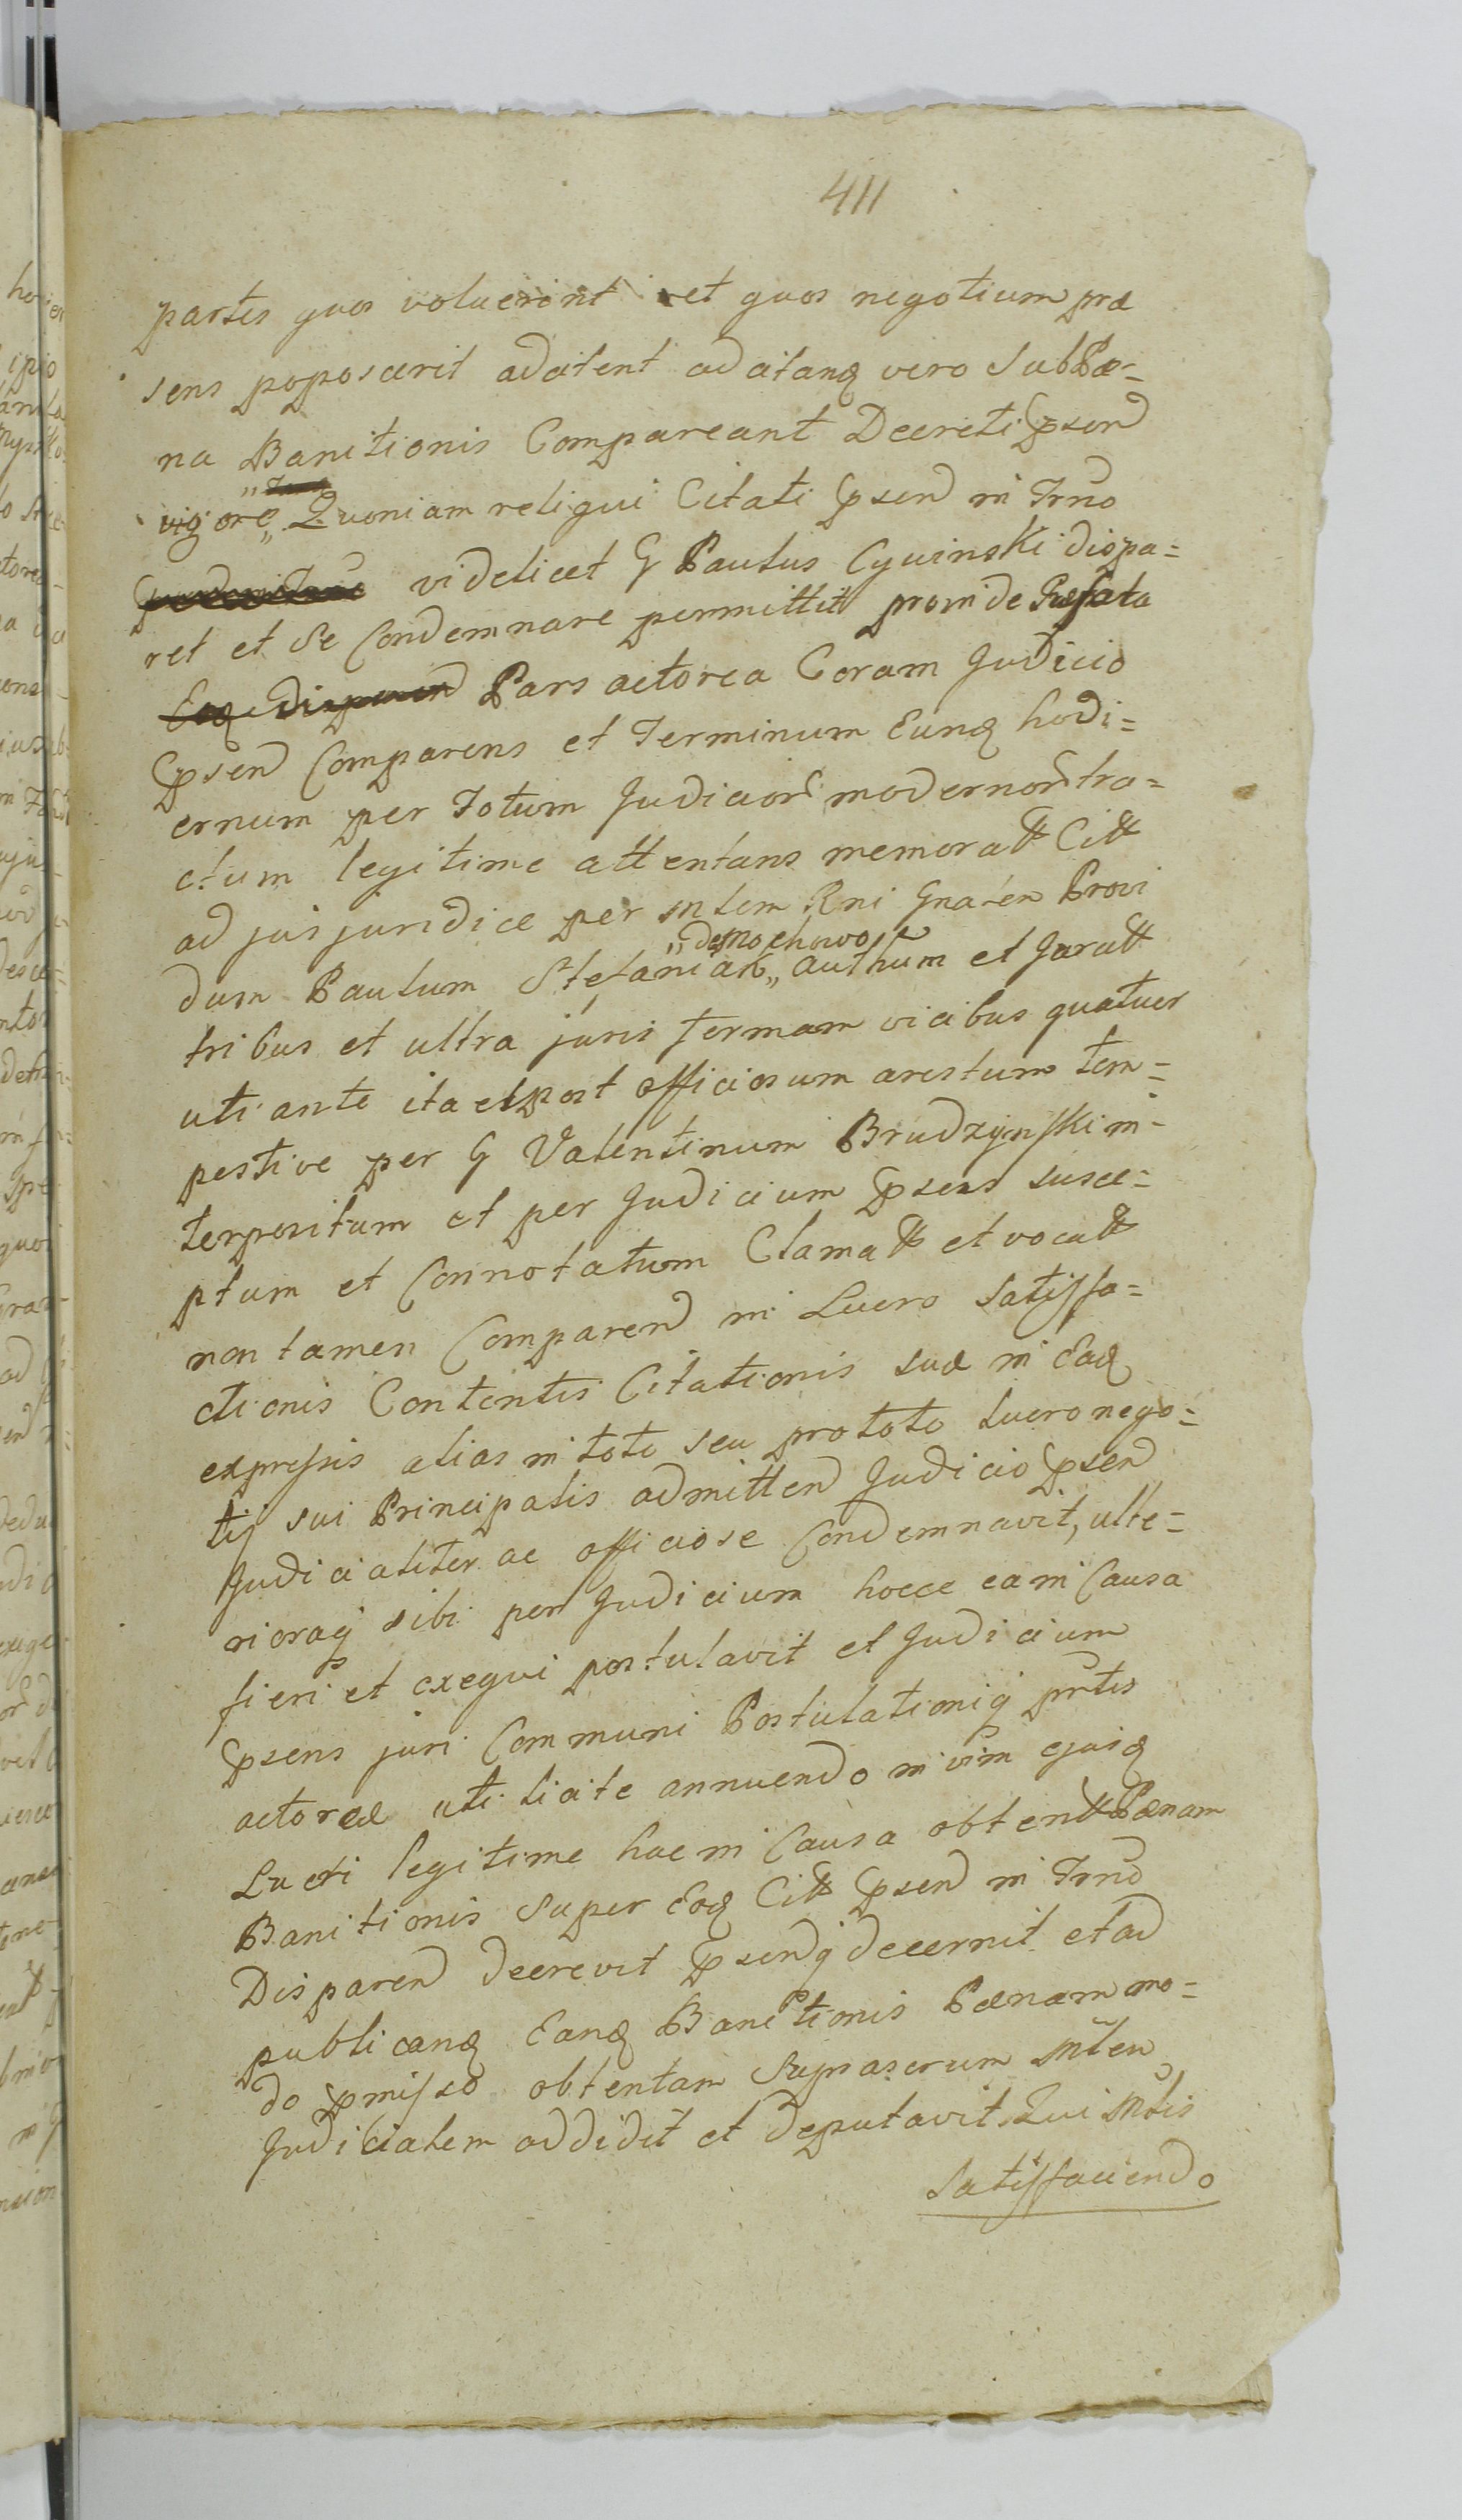 411
partes quos voluerint et quos negotium præ
sens poposcerit adcitent adcitanq vero sub Pæ=
na Banitionis Compareant Decreti Ppsend
vigore „ Quoniam reliqui Citati Ppsend in Trno
videlicet G Paulus Cywinski dispa=
ret et se Condemnare permittit proinde Præfata
Eoq Disparend Pars actorea Coram Judicio
Ppsend Comparens et Terminum Eunq hodi=
ernum per Totum Judicior modernor tra=
ctum legitime attentans memoratt Citt
ad jus juridice per Mlem Rni Gnalen Provi
„ de Mochowo
dum Paulum Stefaniak „ authum et Juratt
tribus et ultra juris formam vicibus quatuor
uti ante ita et post officiosum arestum tem=
pestive per G Valentinum Brudzynski in=
terpositum et per Judicium Ppsens susce=
ptum et Connotatum Clamatt et vocatt
non tamen Comparend in Lucro satisfa=
ctionis Contentis Citationis suæ in Eaq
expressis alias in toto seu pro toto lucro nego=
tij sui Principalis admittend Judicio Ppsend
Judicialiter ac officiose Condemnavit, ulte=
rioraq sibi per Judicium hocce ea in Causa
fieri et exequi postulavit et Judicium
Ppsens juri Communi Postulationiq prtis
actoreæ uti licite annuendo in vim ejusq
Lucri legitime hac in Causa obtentt Pænam
Banitionis super Eoq Citt Ppsend in Trno
Disparend decrevit Ppsendq decernit et ad
publicanq Eanq Banitionis Pænam mo=
do Ppmisso obtentam Supracrum Mlen
Judicialem addidit et deputavit Qui Mtis
satisfaciendo